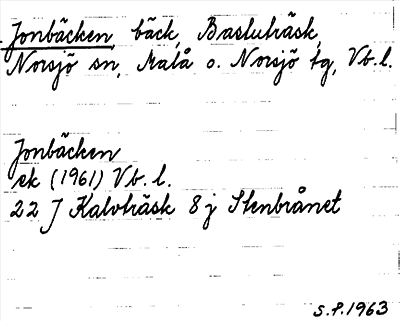 Jonbäcken, bäck, Basluträsk,
Norsjö sn, Malå o. Norsjö tg, Vb.l.
Jonbäcken
ek (1961) Vb.l.
22 J Kalvträsk 8j Stenbrånet
S.P.1963